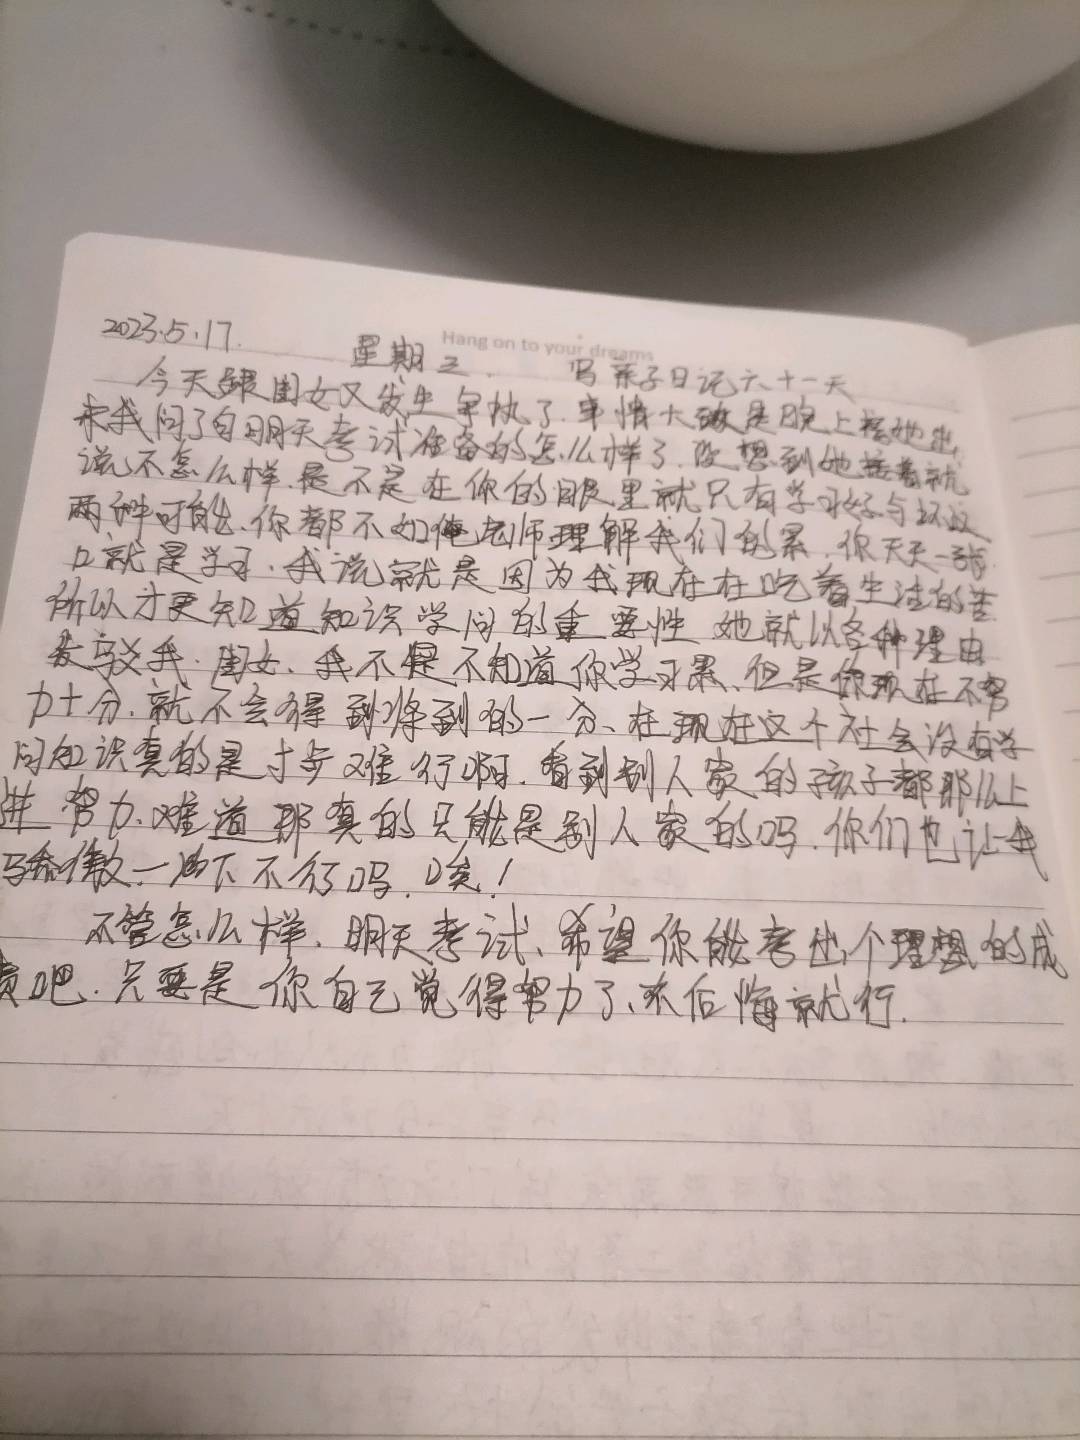 Hang on to your dreams
2023.5.17. 星期三. 写亲子日记六十一天
今天跟闺女又发生争执了.事情大致是晚上接她出
来我问了句明天考试准备的怎么样了.没想到她接着就
说不怎么样.是不是在你的眼里就只有学习好与坏这
两种可能.你都不如俺老师理解我们的累.你天天一张
口就是学习.我说就是因为我现在在吃着生活的苦
所以才更知道知识学问的重要性 她就以各种理由
反驳我.闺女、我不是不知道你学习累、但是你现在不努
力十分.就不会得到将到的一分、在现在这个社会没有学
问知识真的是寸步难行啊.看到别人家的孩子都那么上
进 努力、难道那真的只能是别人家的吗.你们也让我
骄傲一下不行吗.唉!
不管怎么样.明天考试、希望你能考出个理想的成
绩吧.只要是你自己觉得努力了、不后悔就行.